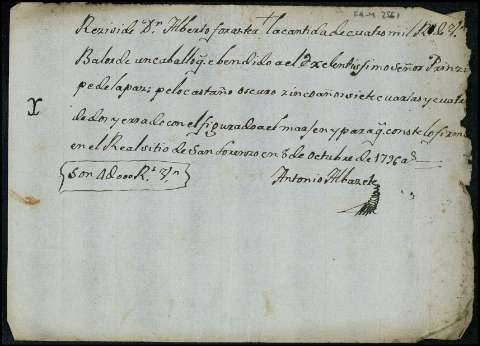 Rezivi de Dn Alberto foraster la cantida de cuatro mil Rs de Vn
Balor de un caballo q e bendido a el Exelentissimo señor Prinzi
pe de la paz; pelo castaño oscuro zinco años siete cuartas y cuatro
dedos y errado con el figurado a el marjen y para q conste lo firmo
en el Real sitio de San Lorenzo en 8 de Octubre de 1796 as
X
Son 4000 Rs Vn
Antonio Albazete